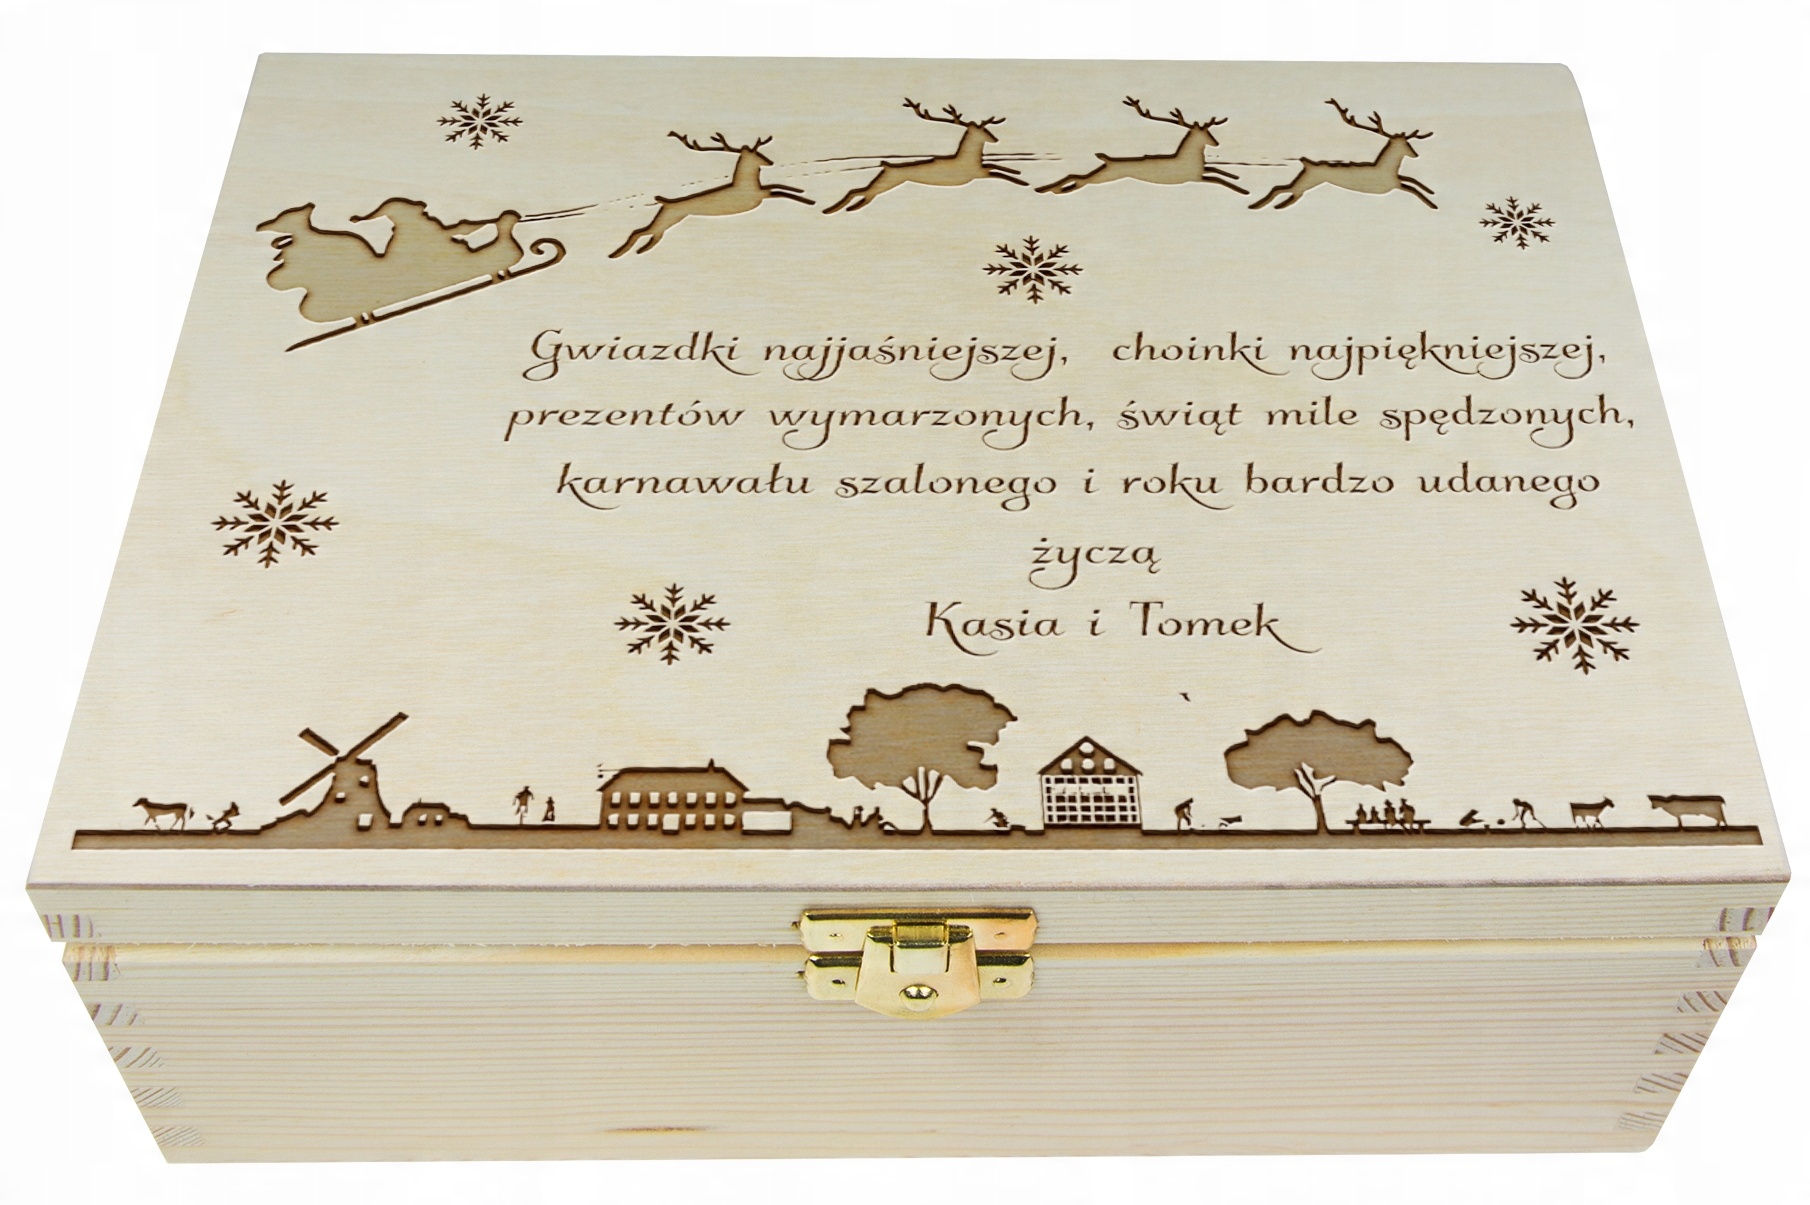 Gwiazdki najjaśniejszej, choinki najpiękniejszej,
prezentów wymarzonych, świąt mile spędzonych,
karnawału szalonego i roku bardzo udanego
życzą
Kasia i Tomek